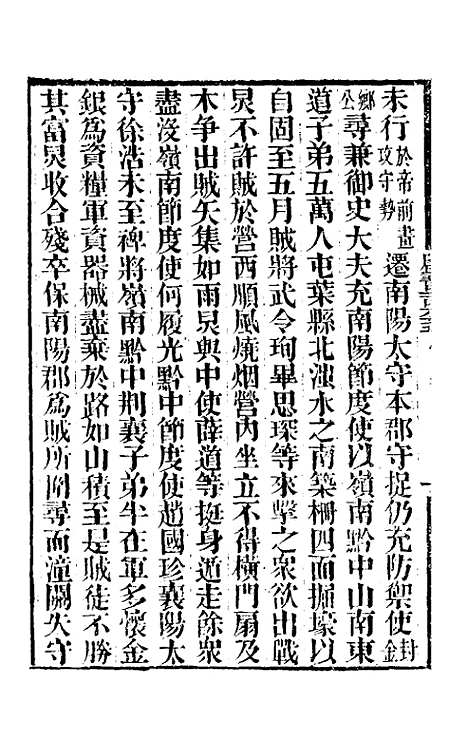 未行於帝前畫攻守勢遷南陽太守本郡守捉仍充防禦使封金
鄉公尋兼御史大夫充南陽節度使以嶺南黔中山南東
道子弟五萬人屯葉縣北滍水之南築柵四面掘壕以
自固至五月賊將武令珣畢思琛等來擊之衆欲出戰
炅不許賊於營西順風燒烟營內坐立不得橫門扇及
木爭出賊矢集如雨炅與中使薛道等挺身遁走餘衆
盡沒嶺南節度使何履光黔中節度使趙國珍襄陽太
守徐浩未至裨將嶺南黔中荆襄子弟半在軍多懷金
銀爲資糧軍資器械盡棄於路如山積至是賊徒不勝
其富炅收合殘卒保南陽郡爲賊所圍尋而潼關失守